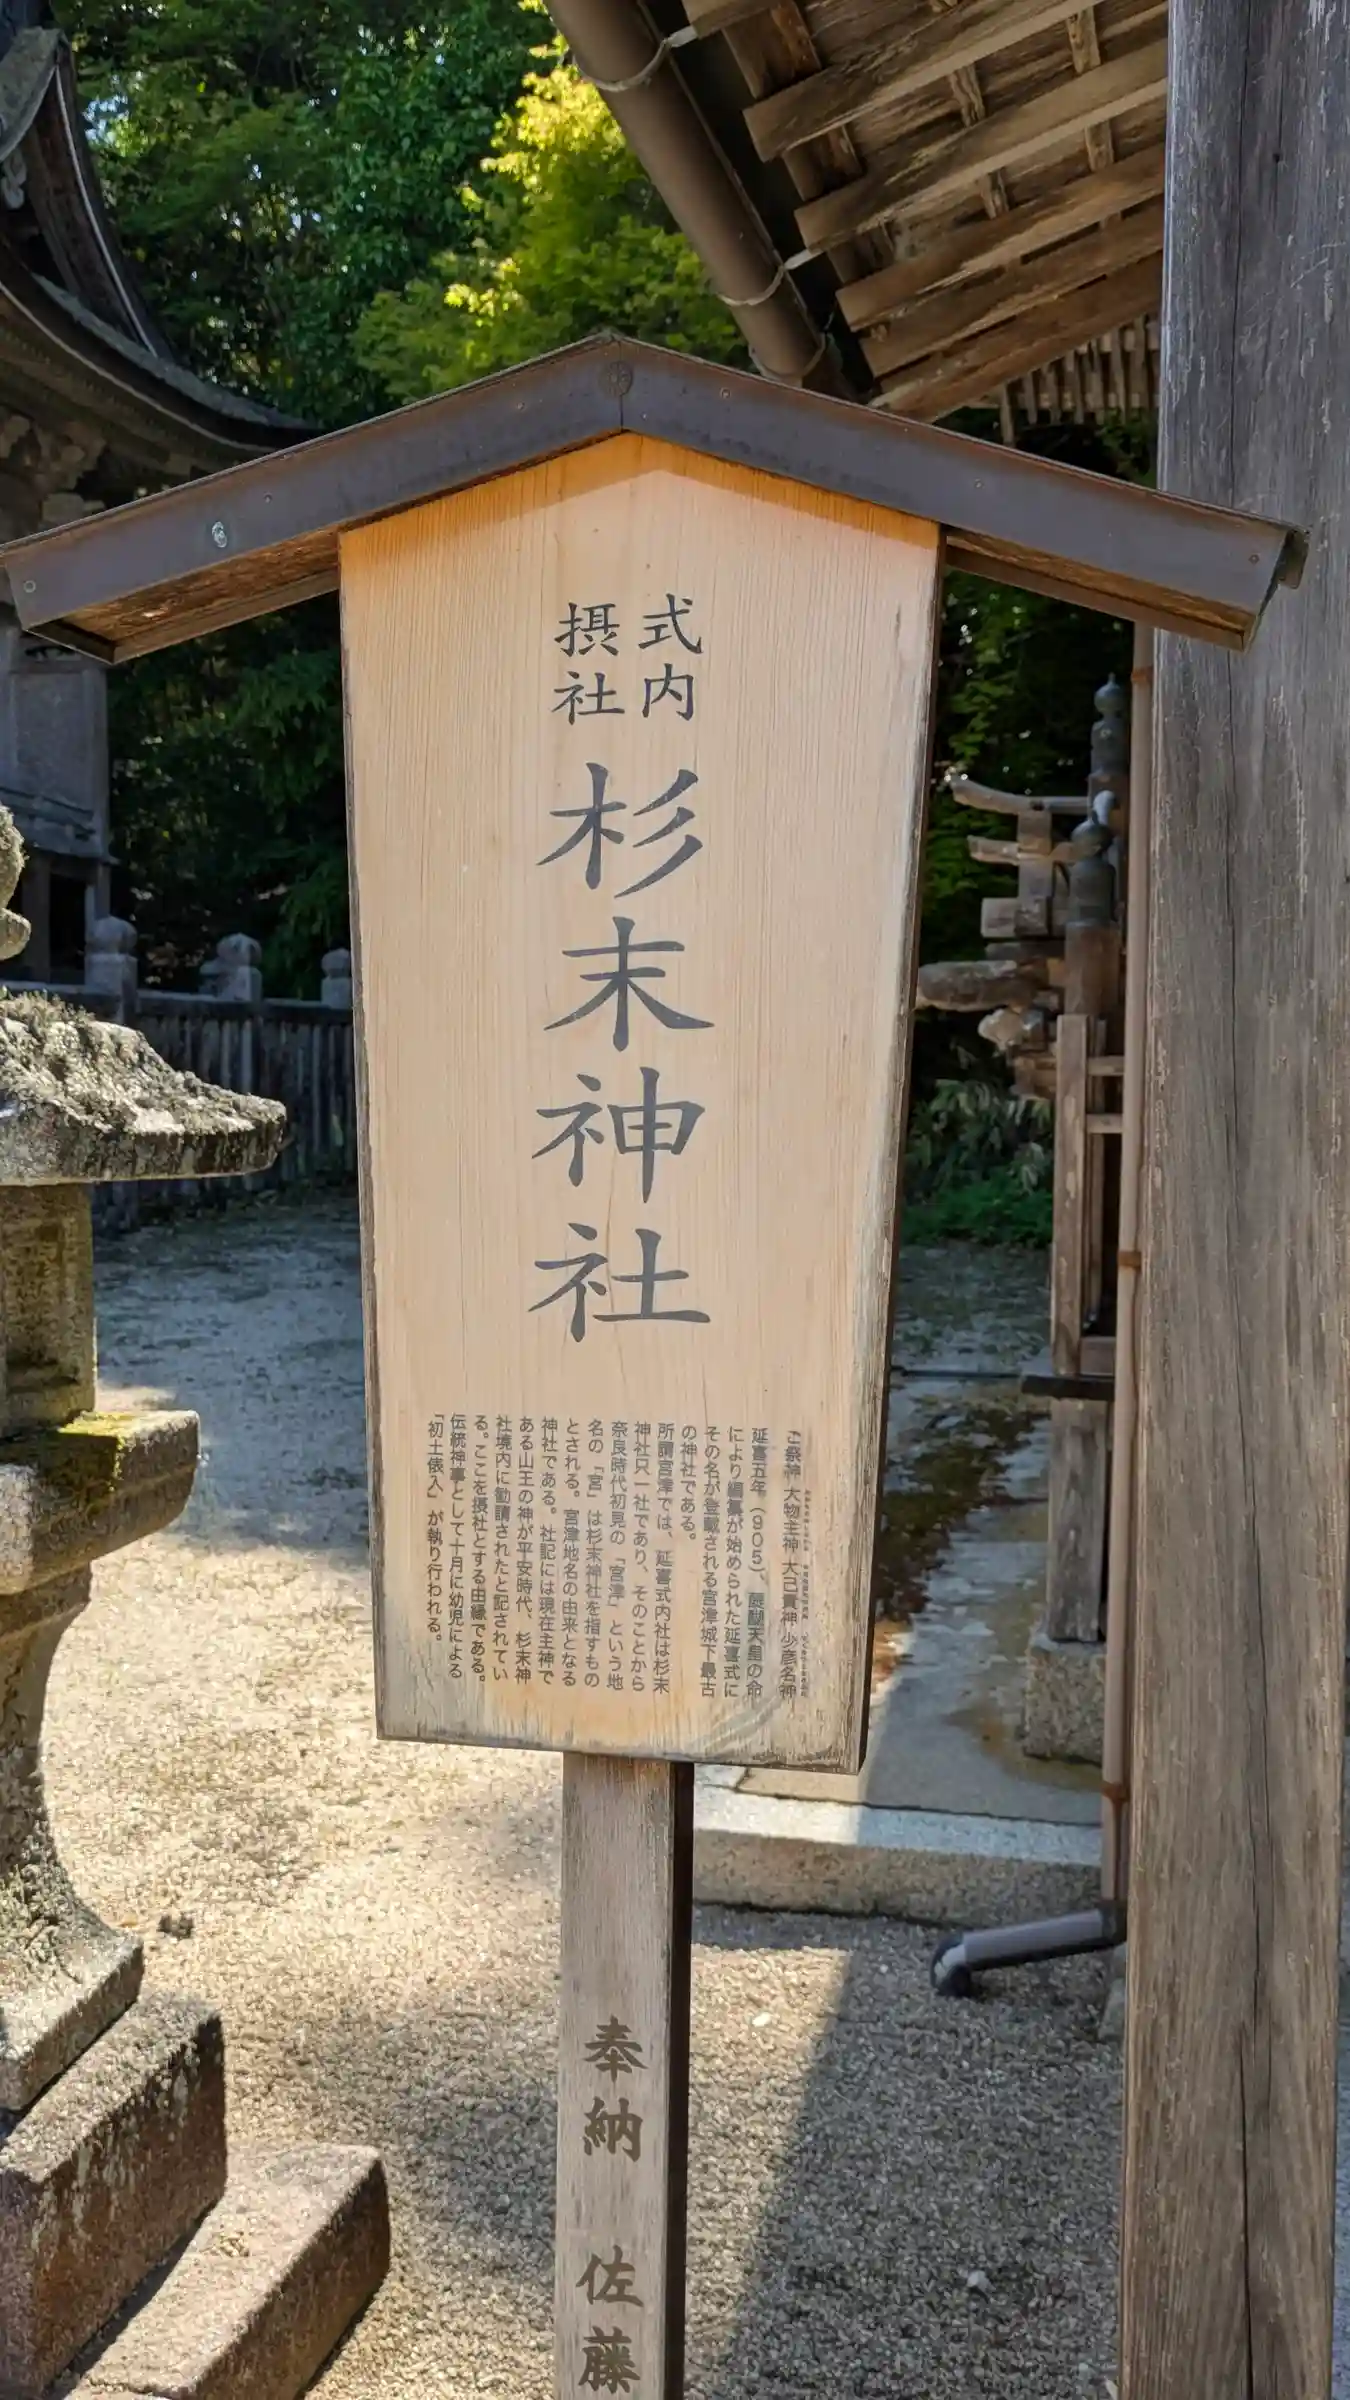 式内
摂社
杉末神社
ご祭神 大物主神 大己貴神 少彦名神
延喜五年(905)、醍醐天皇の命
により編纂が始められた延喜式に
その名が登載される宮津城下最古
の神社である。
所謂宮津では、延喜式内社は杉末
神社只一社であり、そのことから
奈良時代初見の「宮津」という地
名の「宮」は杉末神社を指すもの
とされる。宮津地名の由来となる
神社である。社記には現在主神で
ある山王の神が平安時代、杉末神
社境内に勧請されたと記されてい
る。ここを摂社とする由縁である。
伝統神事として十月に幼児による
「初土俵入」が執り行われる。
奉納 佐藤